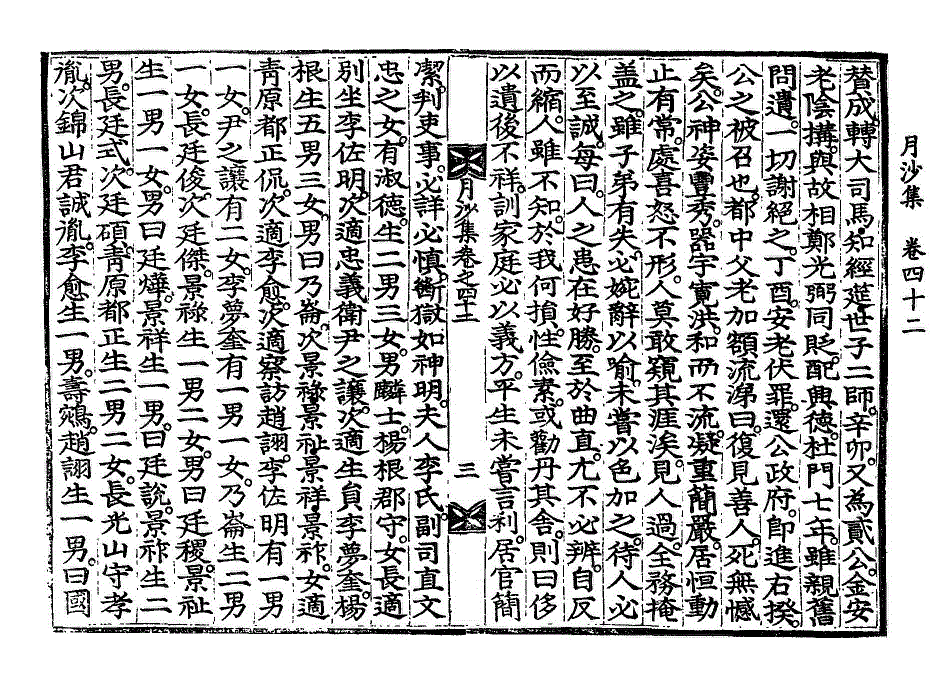 月沙集 卷四十二
替成。轉大司馬。知經筵。世子二師。辛卯。又為貳公。金安
老陰搆。與故相鄭光弼同貶。配興德。杜門七年。雖親舊
問遺。一切謝絕之。丁酉。安老伏罪。還公政府。卽進右揆。
公之被召也。都中父老加額流涕曰。復見善人。死無憾
矣。公神姿豐秀。器宇寬洪。和而不流。凝重簡嚴。居恒動
止有常。處喜怒不形。人莫敢窺其涯涘。見人過。全務掩
盖之。雖子弟有失。必婉辭以喻。未嘗以色加之。待人必
以至誠。每曰。人之患在好勝。至於曲直。尤不必辨。自反
而縮。人雖不知。於我何損。性儉素。或勸丹其舍。則曰侈
以遺後不祥。訓家庭必以義方。平生未嘗言利。居官簡
月沙集卷之四十二 三
潔。判吏事。必詳必愼。斷獄如神明。夫人李氏。副司直文
忠之女。有淑德。生二男三女。男麟士楊根郡守。女長適
別坐李佐明。次適忠義衛尹之讓。次適生員李夢奎。楊
根生五男三女。男曰乃崙。次景祿,景祉,景祥,景祚。女適
靑原都正侃。次適李愈。次適察訪趙詡。李佐明有一男
一女。尹之讓有二女。李夢奎有一男一女。乃崙生二男
一女。長廷俊。次廷傑。景祿生一男二女。男曰廷稷。景祉
生一男一女。男曰廷燁。景祥生一男。曰廷說。景祚生二
男。長廷式。次廷碩。靑原都正生二男二女。長光山守孝
胤。次錦山君誠胤。李愈生一男。壽鵷。趙詡生一男。曰國